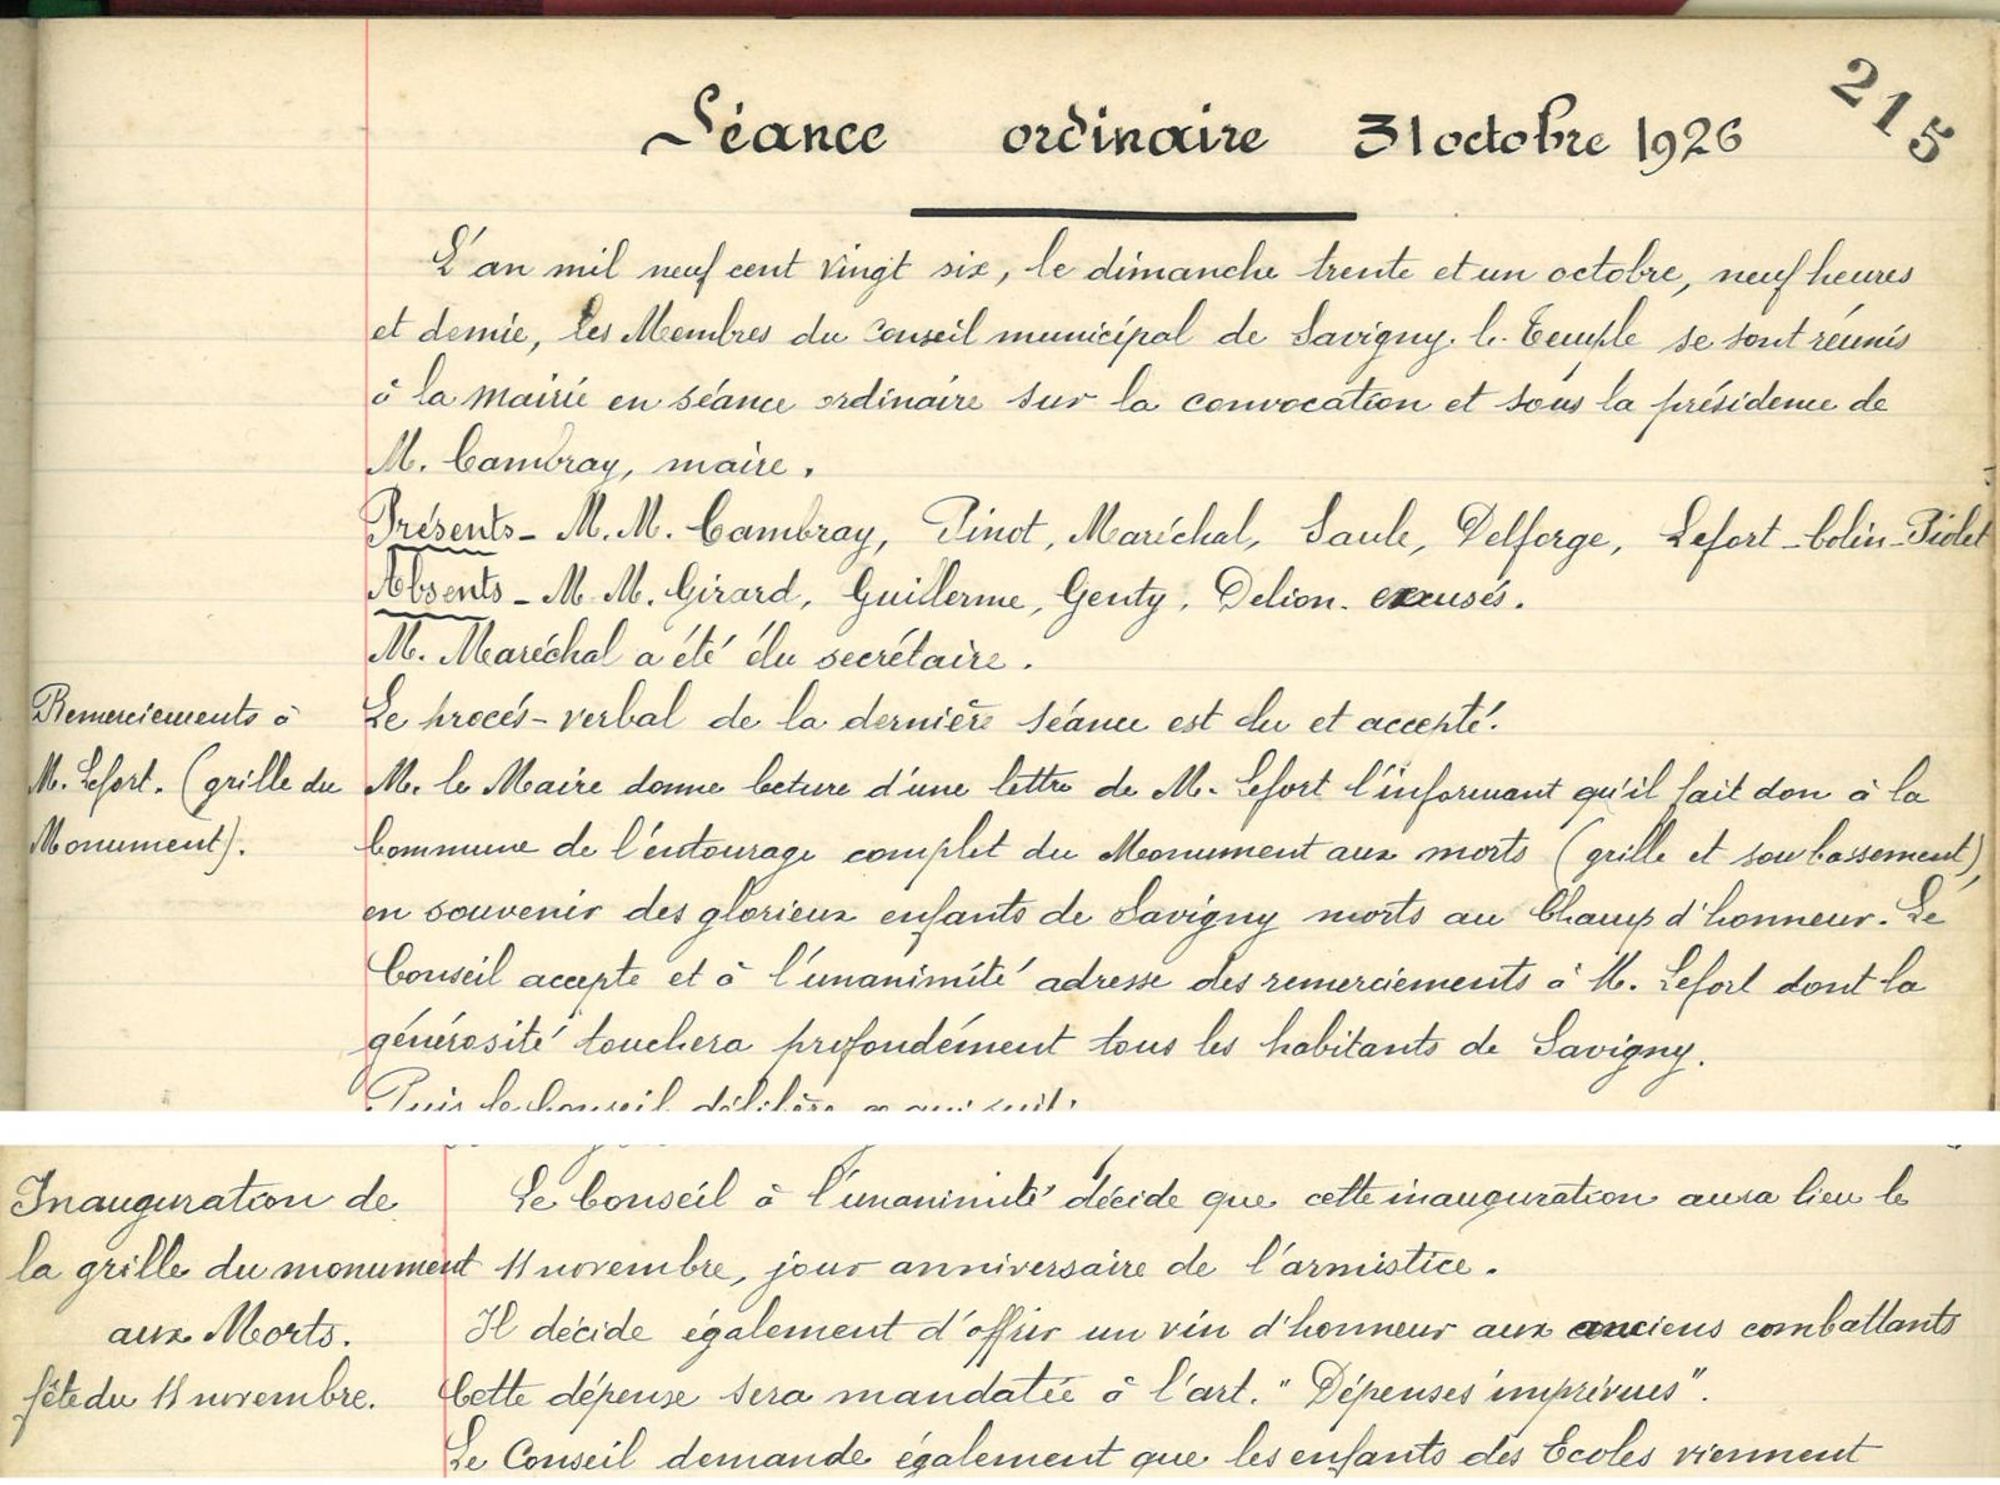 215
Séance ordinaire 31 octobre 1926
L'an mil neuf cent vingt six, le dimanche trente et un octobre, neuf heures
et demie, les Membres du Conseil municipal de Savigny-le-Temple se sont réunis
à la Mairie en séance ordinaire sur la convocation et sous la présidence de
M. Cambray, maire.
Présents - M.M. Cambray, Pinot, Maréchal, Saule, Delforge, Lefort - Colin - Piolet
Absents - M.M. Girard, Guillerme, Genty, Delion. excusés.
M. Maréchal a été élu secrétaire.
Le procès-verbal de la dernière séance est lu et accepté.
Remerciements à
M. Lefort. (grille du
Monument).
M. le Maire donne lecture d'une lettre de M. Lefort l'informant qu'il fait don à la
Commune de l'entourage complet du Monument aux morts (grille et soubassement),
en souvenir des glorieux enfants de Savigny morts au Champ d'honneur. Le
Conseil accepte et à l'unanimité adresse des remerciements à M. Lefort dont la
générosité touchera profondément tous les habitants de Savigny.
Puis le Conseil délibère ce qui suit:
Inauguration de
la grille du monument
aux Morts.
fête du 11 novembre.
Le Conseil à l'unanimité décide que cette inauguration aura lieu le
11 novembre, jour anniversaire de l'armistice.
Il décide également d'offrir un vin d'honneur aux anciens combattants
Cette dépense sera mandatée à l'art. "Dépenses imprévues".
Le Conseil demande également que les enfants des Ecoles viennent